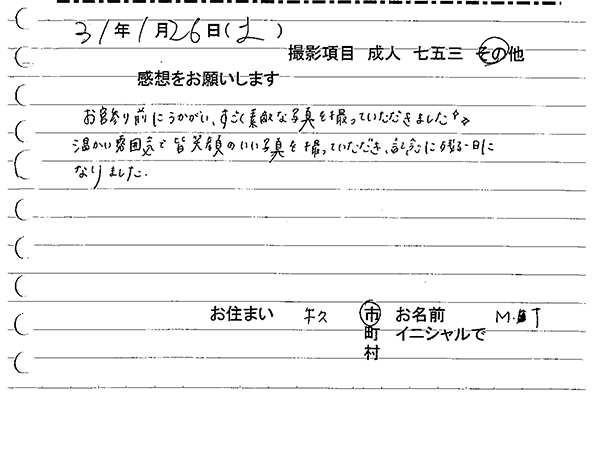 31年1月26日(土)
撮影項目 成人 七五三 その他
感想をお願いします
お宮参り前にうかがい、すごく素敵な写真を撮っていただきました
温かい雰囲気で皆笑顔のいい写真を撮っていただき、記念に残る一日に
なりました。
お住まい 牛久 市 お名前 M.T
町 イニシャルで
村